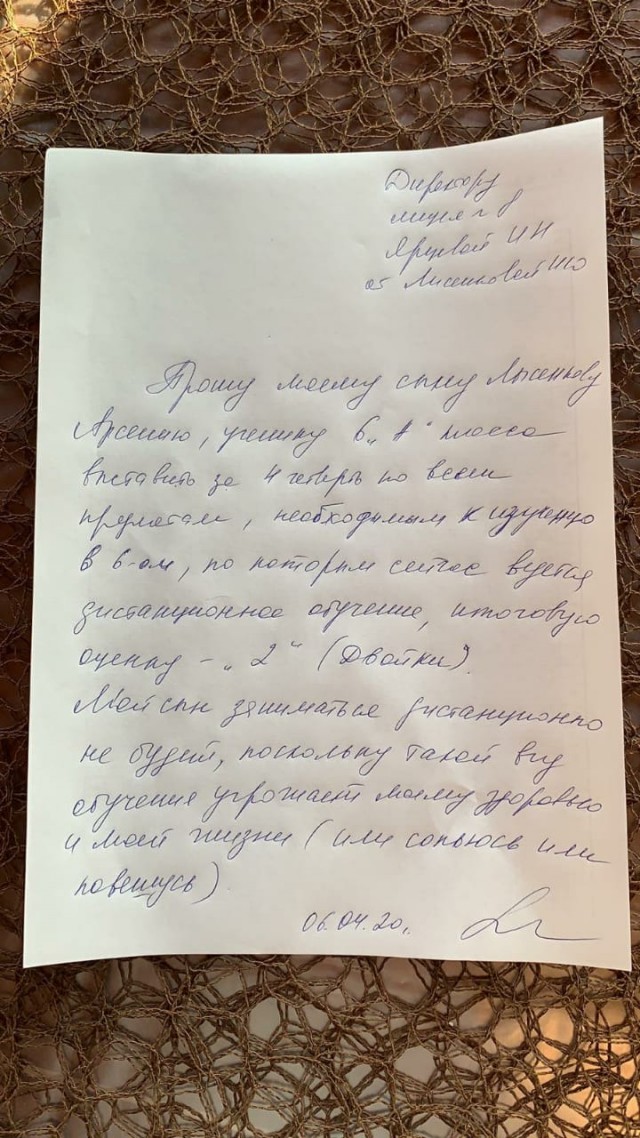 Директору
лицея № 8
Ярцевой ИН
от Лысенковой ИЮ
Прошу моему сыну Лысенкову
Арсению, ученику 6 „А“ класса
выставить за 4 четверть по всем
предметам, необходимым к изучению
в 6-ом, по которым сейчас ведётся
дистанционное обучение, итоговую
оценку – „2“ (Двойки).
Мой сын заниматься дистанционно
не будет, поскольку такой вид
обучения угрожает моему здоровью
и моей жизни (или сопьюсь или
повешусь)
06.04.20г.